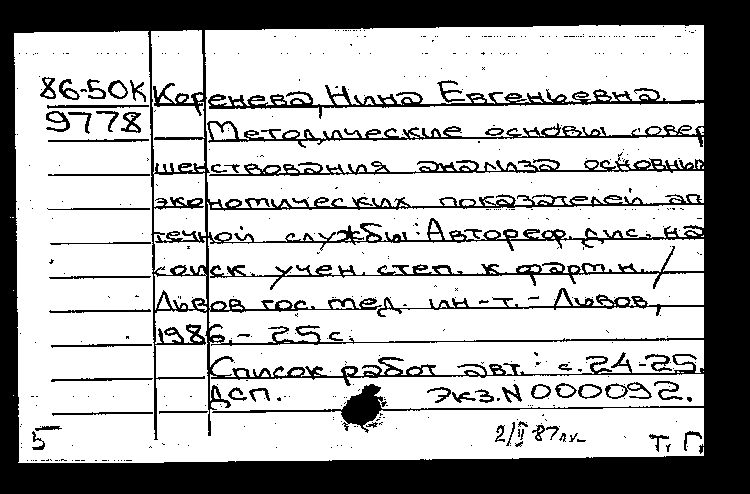 86-50К Коренева, Нина Евгеньевна.
9778 Методические основы совер
шенствования анализа основны
экономических показателей ап
течной службы: Автореф. дис. на
соиск. учен. степ. к фарм. н. /
Львов гос. мед. ин-т. - Львов,
1986. - 25 с.
Список работ авт.: с. 24-25.
ДСП. Экз. N 000092.
5 2/II 87 Т. Г.